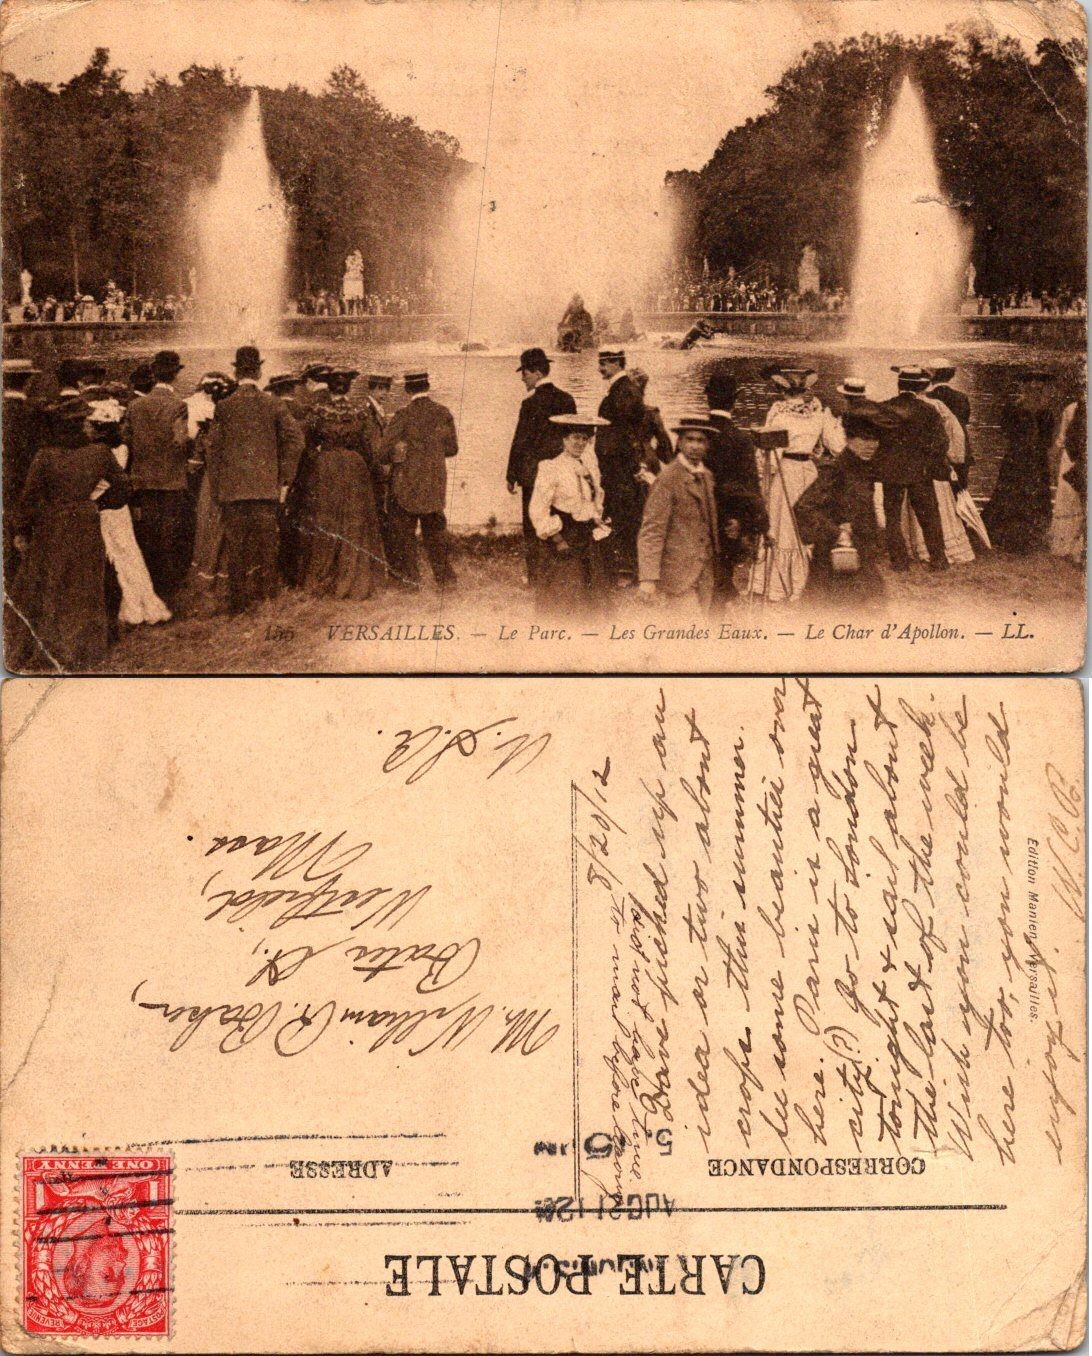 155 VERSAILLES. — Le Parc. — Les Grandes Eaux. — Le Char d'Apollon. — LL.
CARTE POSTALE
CORRESPONDANCE
ADRESSE
ONE PENNY
POSTAGE
REVENUE
1
1
AUG 21 12
5
Mr. William R. Baker,
Bates St.,
Westfield,
Mass.
U. S. A.
8/2 1/12
did not have time
to mail before leaving
Have picked up an
idea or two about
crops this summer.
See some beauties over
here. Paris is a great
city (?) Go to London
tonight & sail about
the last of the week.
Wish you could be
here too, you would
enjoy it.
Edition Manien, Versailles.